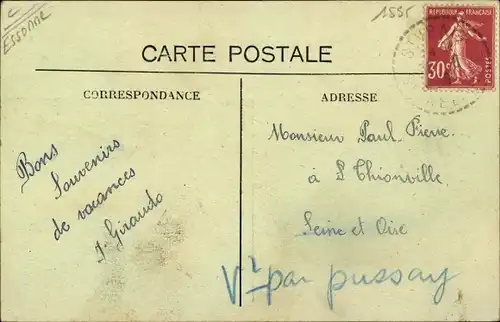 ESSONNE
1595
REPUBLIQUE FRANÇAISE
30c
POSTES
CARTE POSTALE
CORRESPONDANCE
ADRESSE
Bons
Souvenirs
de vacances
Giraudo
Monsieur Paul Pierre
à Thionville
Seine et Oise
par pussay